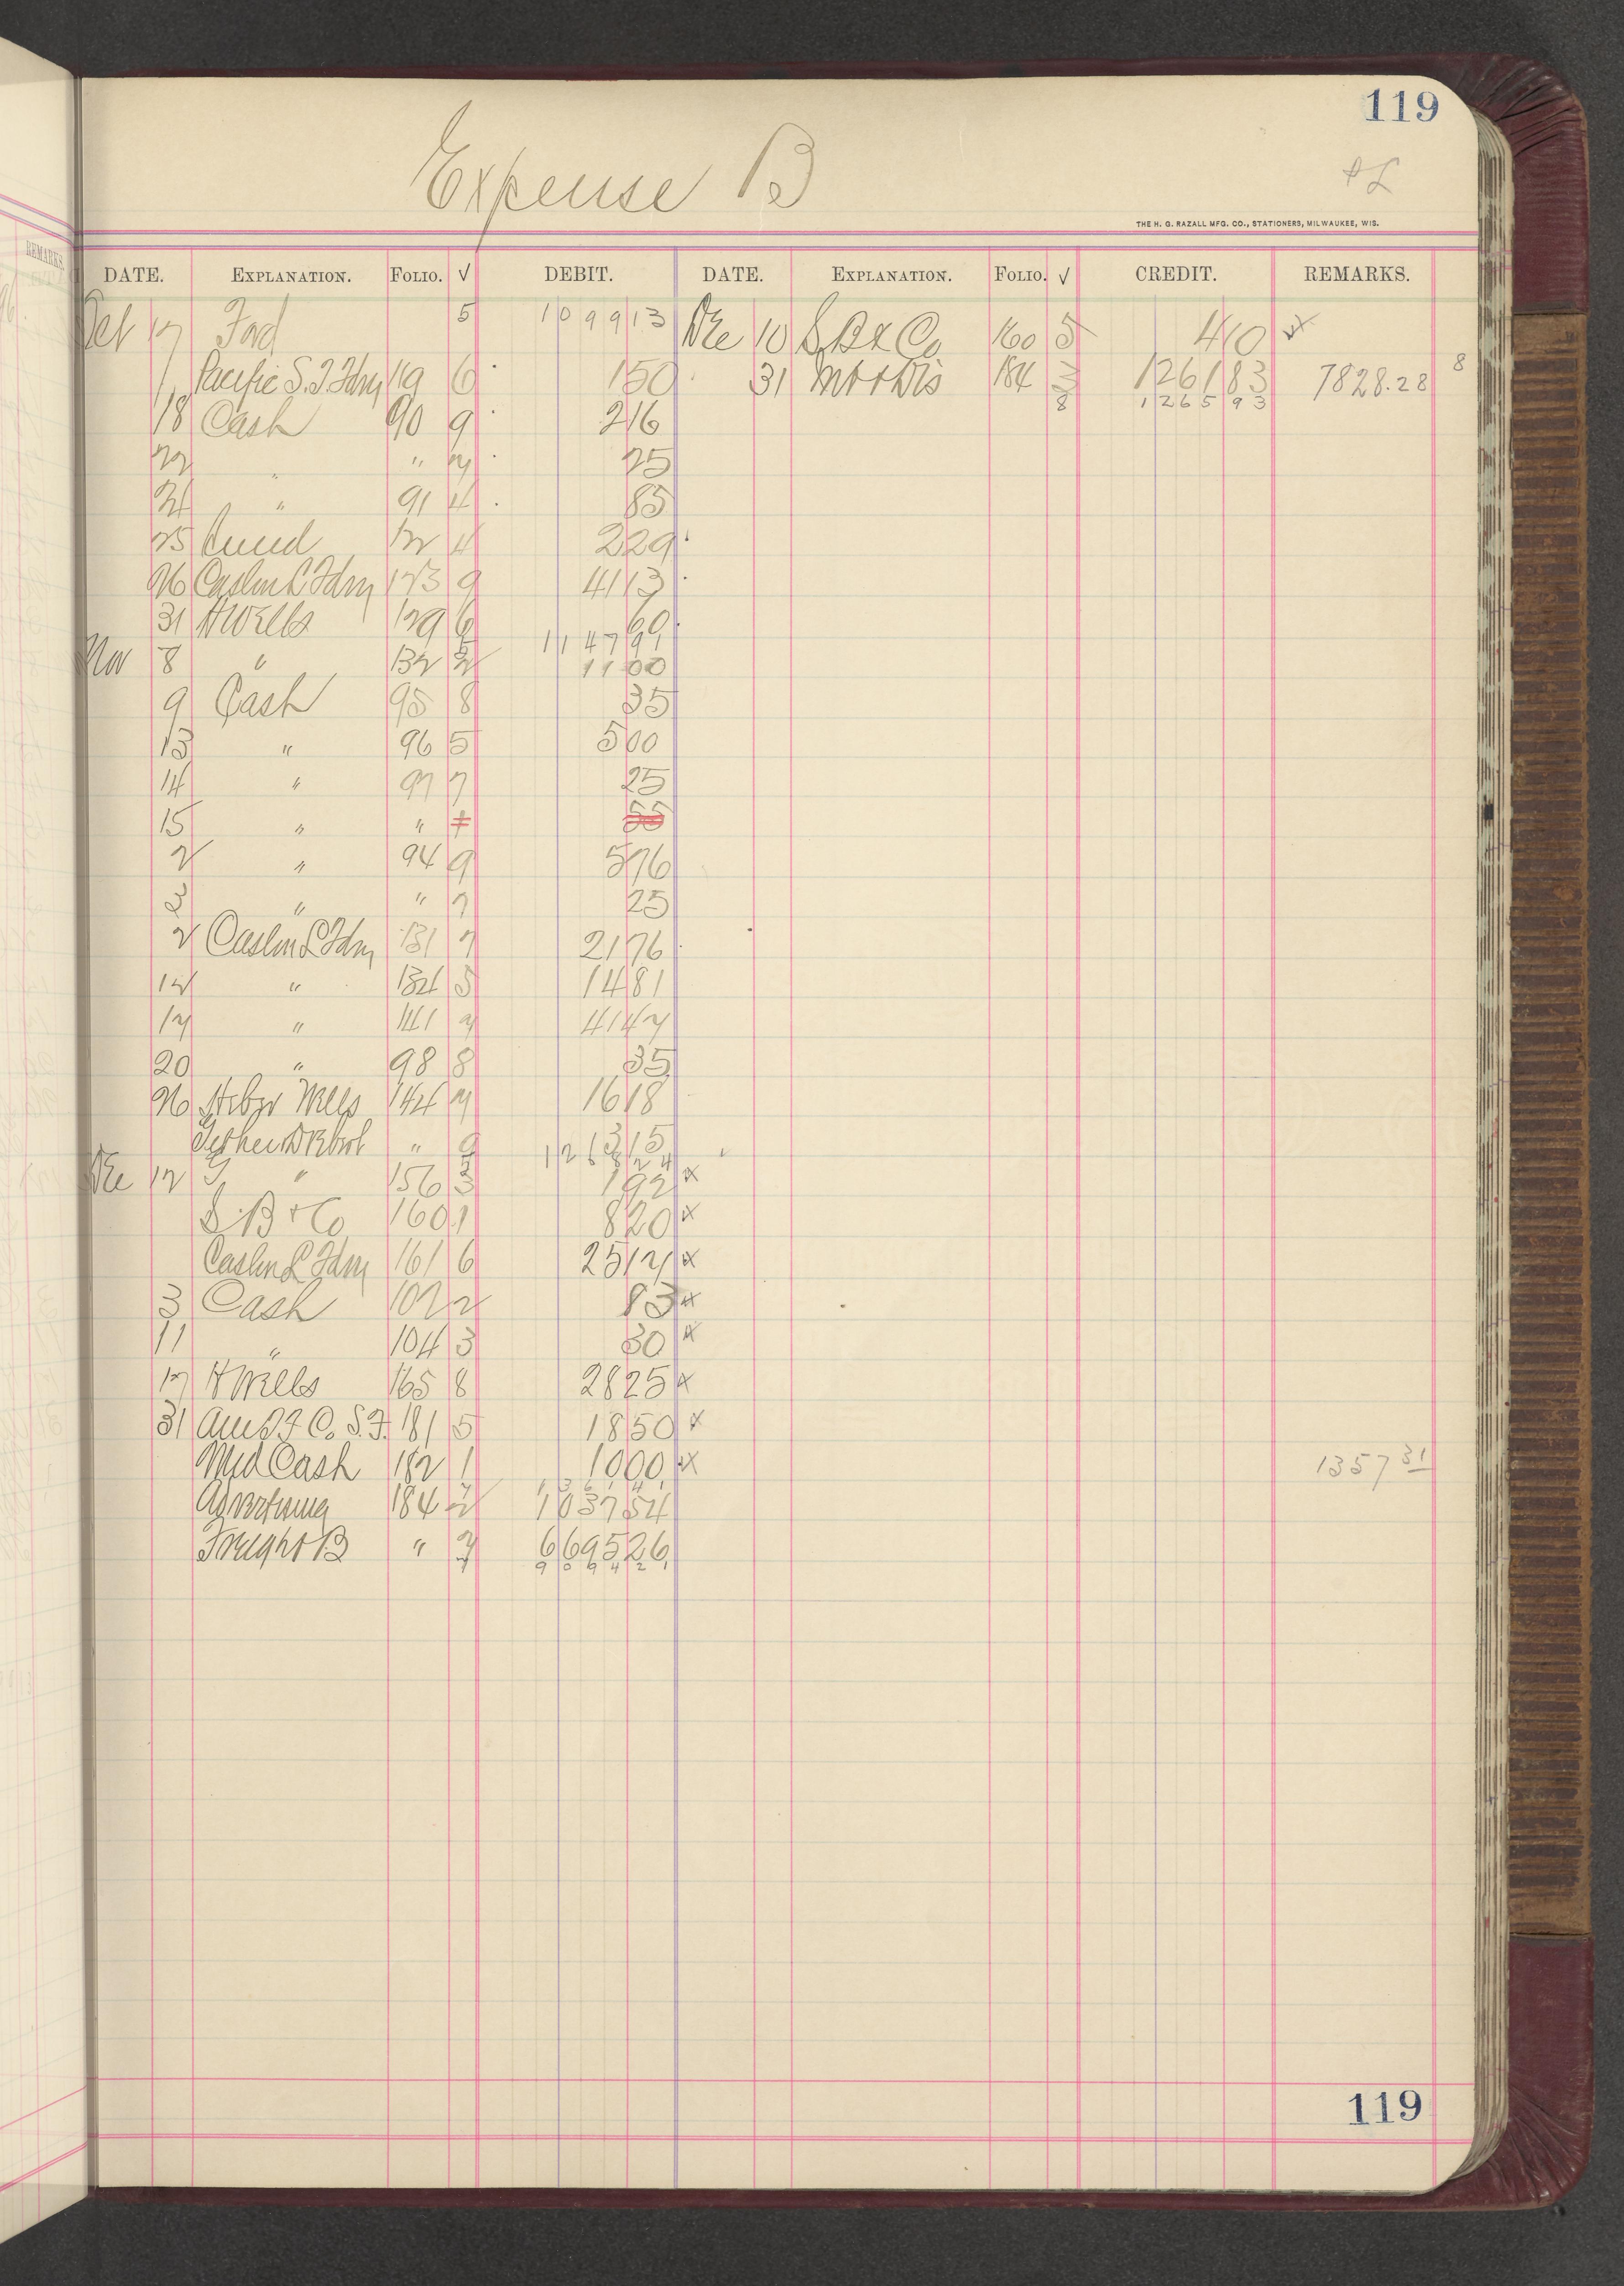 119
Expense B
P L
THE H. G. RAZALL MFG. CO., STATIONERS, MILWAUKEE, WIS.
DATE. EXPLANATION. FOLIO. √ DEBIT. DATE. EXPLANATION. FOLIO. √ CREDIT. REMARKS.
Oct 17 Ford 5 1099 13 Dec 10 S B & Co 160 5 4 10
Pacific S. T. Fdry 119 6 1 50 31 184 3 1261 83 7828.28 8
18 Cash 90 9 2 16 8 1265 93
22 " " 7 25
24 " 91 4 85
25 4 2 29
26 Caslon L Fdry 123 9 41 13
31 H Wells 129 6 60
1147 91
Nov 8 " 132 2 11 00
9 Cash 95 8 35
13 " 96 5 5 00
14 " 97 7 25
15 " " 55
2 " 94 9 5 76
3 " " 7 25
2 Caslon L Fdry 131 7 21 76
12 " 134 5 14 81
17 " 141 7 41 47
20 " 98 8 35
26 Heber Wells 144 7 16 18
" 9 3 15
126 8 24
Dec 12 " 156 3 1 92 x
S. B & Co 160 1 8 20 x
Caslon L Fdry 161 6 25 17 x
3 Cash 102 2 83 x
11 " 104 3 30 x
17 H Wells 165 8 28 25 x
31 Am T F Co S. F. 181 5 18 50 x
Mdcash 182 1 10 00 x 1357 31
1361 41
Advertising 184 2 1037 54
Freight B " 7 6695 26
9094 21
119